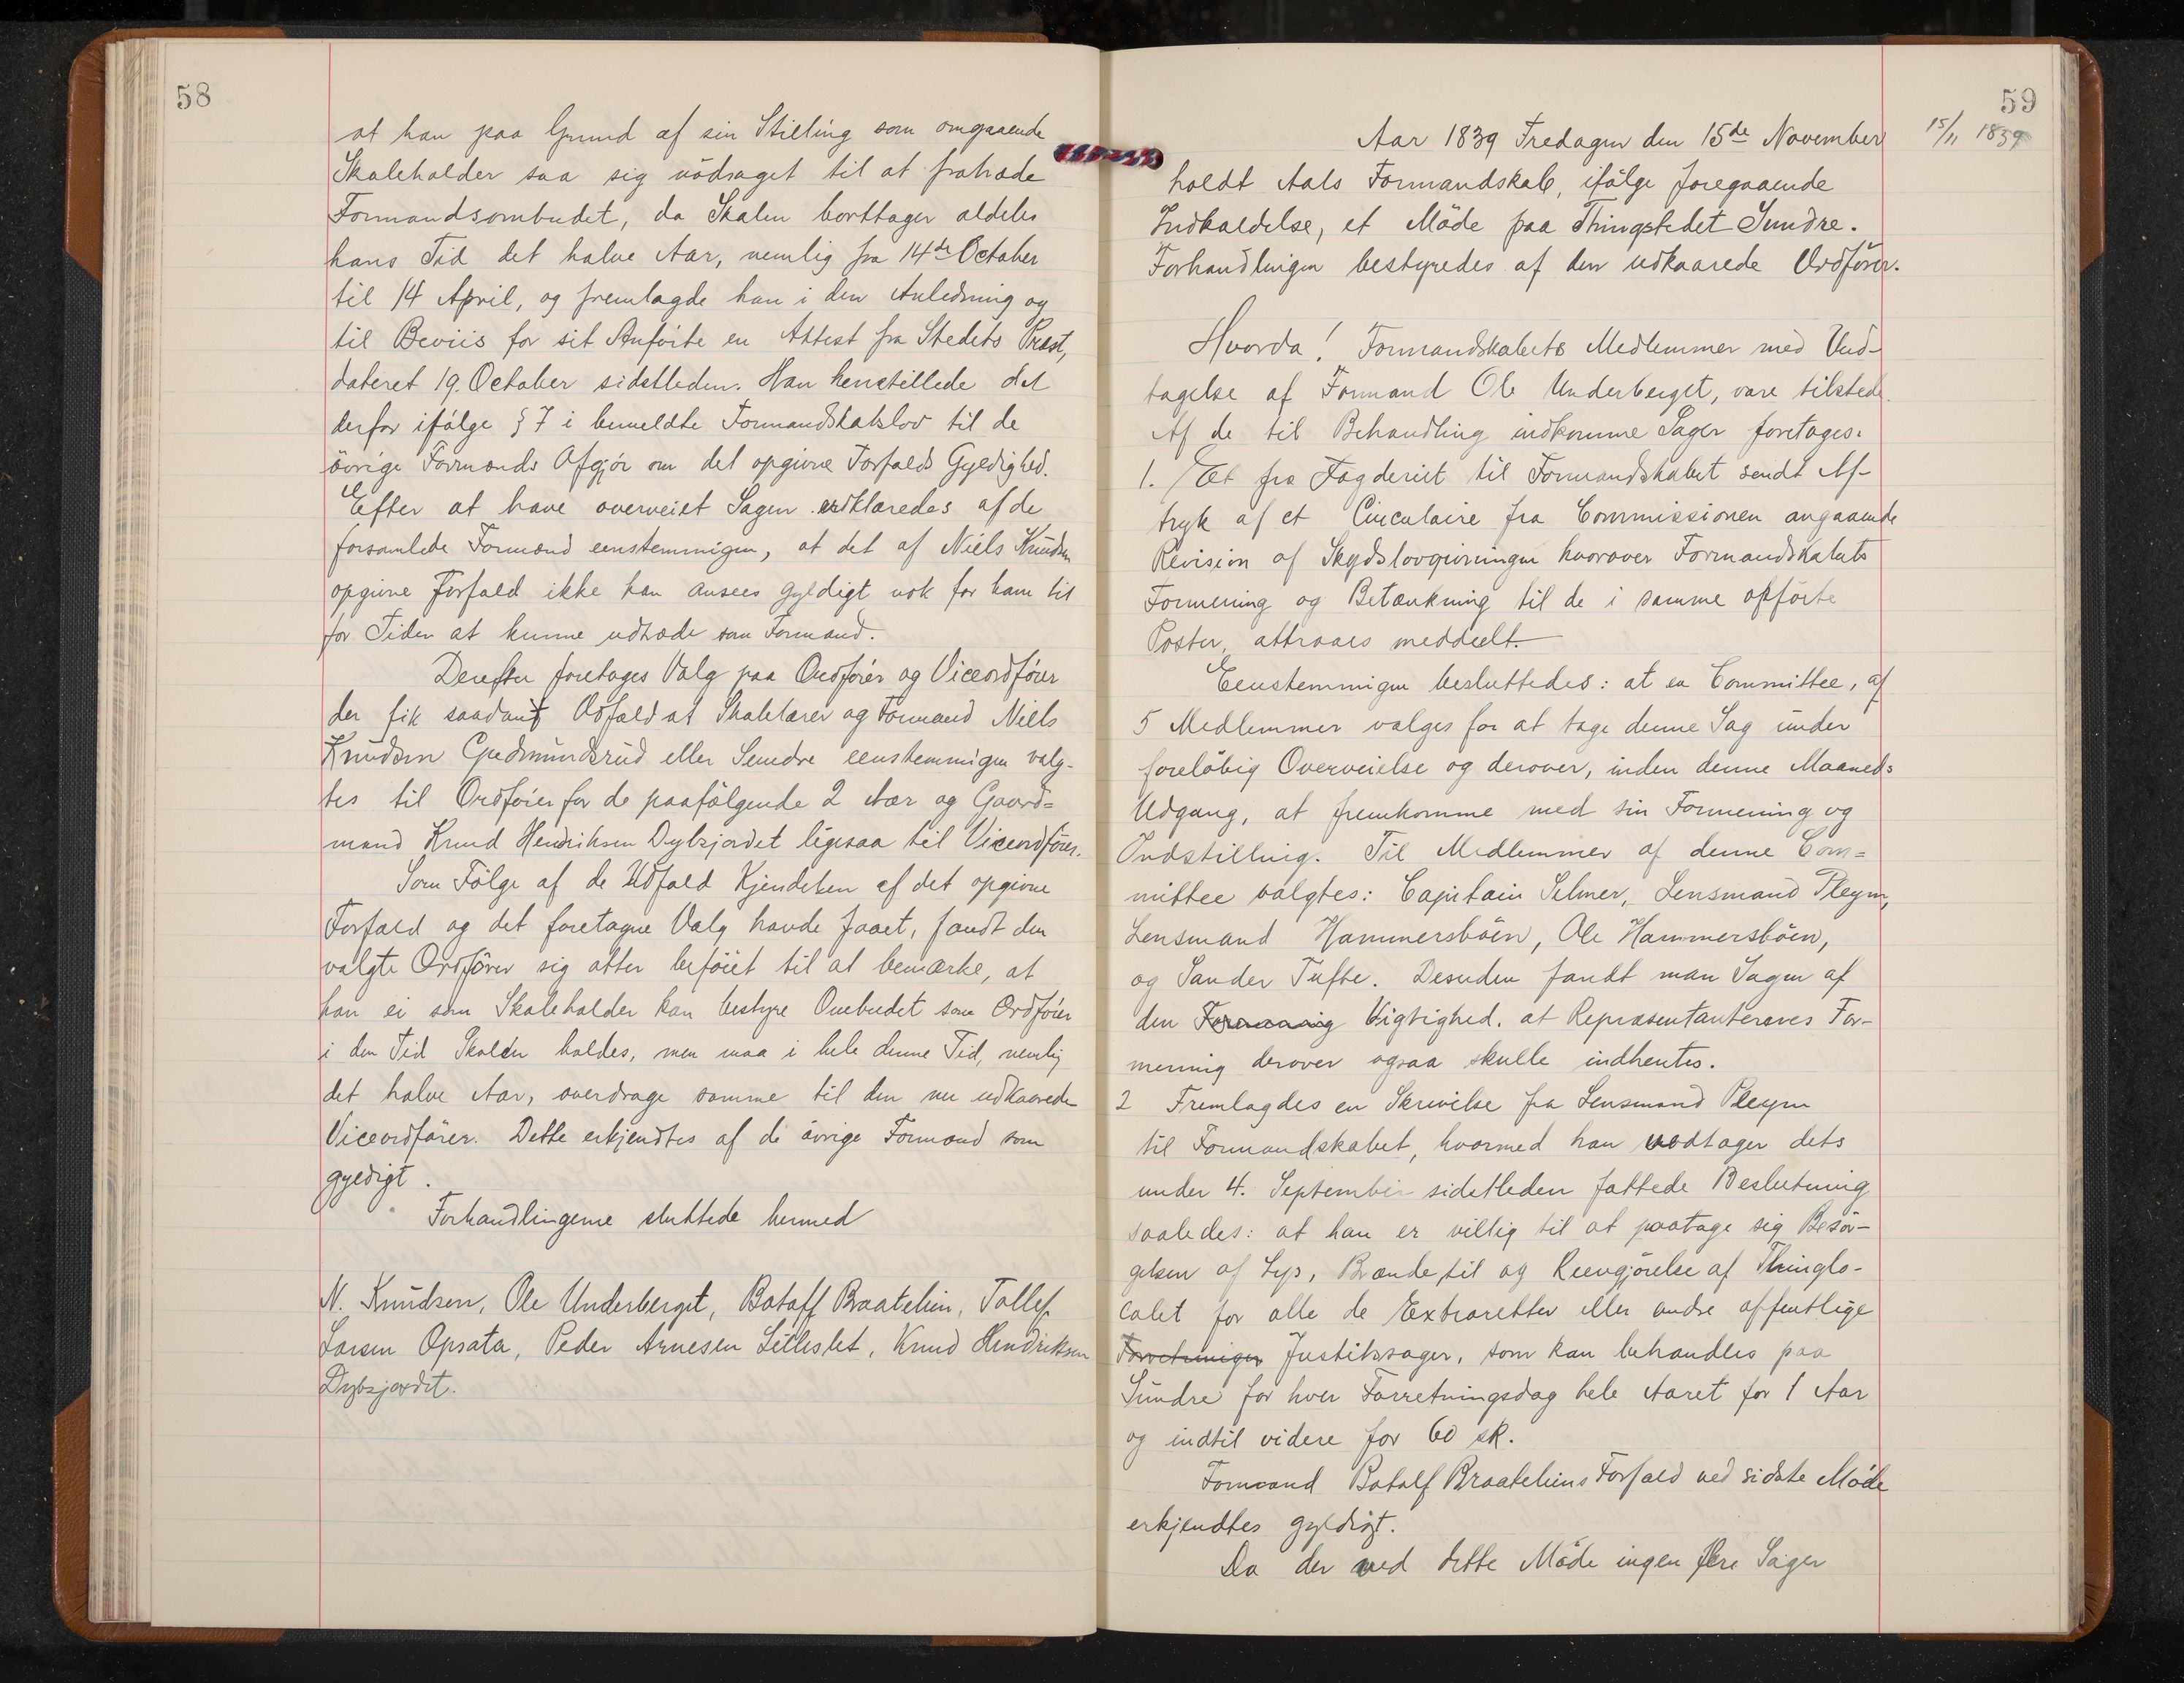 58
at han paa Grund af sin Stilling som omgaaende
Skoleholder saa sig nödsaget til at fratræde
Formandsombudet, da Skolen borttager aldeles
hans Tid det halve Aar, nemlig fra 14de October
til 14 April, og fremlagde han i den Anledning og
til Beviis for sit Anførte en Attest fra Stedets Præst,
dateret 19. October sidstleden. Han henstillede det
derfor ifölge § 7 i bemeldte Formandskabslov til de
övrige Formænds Afgjör om det opgivne Forfalds Gyldighed.
Efter at have overveiet Sagen erklæredes af de
forsamlede Formænd eenstemmigen, at det af Niels Knudsen
opgivne Forfald ikke kan ansees gyldigt nok for ham til
for Tiden at kunne udtræde som Formand.
Derefter foretoges Valg paa Ordförer og Viceordförer
der fik saadant Udfald at Skolelærer og Formand Niels
Knudsen Gudmundsrud eller Sundre eenstemmigen valg-
tes til Ordförer for de paafölgende 2 Aar og Gaard=
mand Knud Hendriksen Dybsjordet ligesaa til Viceordförer.
Som Fölge af de Udfald Kjendelsen af det opgivne
Forfald og det foretagne Valg havde faaet, fandt den
valgte Ordförer sig atter beföiet til at bemærke, at
han ei som Skoleholder kan bestyre Ombudet som Ordförer
i den Tid Skolen holdes, men maa i hele denne Tid, nemlig
det halve Aar, overdrage samme til den nu udkaarede
Viceordförer. Dette erkjendtes af de övrige Formænd som
gyldigt.
Forhandlingerne sluttede hermed
N. Knudsen, Ole Underberget, Botolf Braatelien, Tollef
Larsen Opsata, Peder Arnesen Lilleslet, Knud Hendriksen
Dybsjordet.
59
15/11 1839
Aar 1839 Fredagen den 15de November
holdt Aals Formandskab, ifölge foregaaende
Indkaldelse, et Möde paa Thingstedet Sundre.
Forhandlingen bestyredes af den udkaarede Ordförer.
Hvorda! Formandskabets Medlemmer med Und-
tagelse af Formand Ole Underberget, vare tilstede.
Af de til Behandling indkomne Sager foretoges.
1. Et fra Fogderiet til Formandskabet sendt Af-
tryk af et Circulaire fra Commissionen angaaende
Revision af Skydslovgivningen hvorover Formandskabets
Formening og Betænkning til de i samme opförte
Poster, attraaes meddeelt.
Eenstemmigen besluttedes: at en Committee, af
5 Medlemmer vælges for at tage denne Sag under
forelöbig Overveielse og derover, inden denne Maaneds
Udgang, at fremkomme med sin Formening og
Indstilling. Til Medlemmer af denne Com=
mittee valgtes: Capitain Selmer, Lensmand Pleym,
Lensmand Hammersböen, Ole Hammersböen,
og Sander Tufte. Desuden fandt man Sagen af
den Formening Vigtighed. at Repræsentanternes For-
mening derover ogsaa skulle indhentes.
2 Fremlagdes en Skrivelse fra Lensmand Pleym
til Formandskabet, hvormed han modtager dets
under 4. September sidstleden fattede Beslutning
saaledes: at han er villig til at paatage sig Besör-
gelsen af Lys, Brænde til og Reengjörelse af Thinglo-
calet for alle de Extraretter eller andre offentlige
Forretninger Justitssager, som kan behandles paa
Sundre for hver Forretningsdag hele Aaret for 1 Aar
og indtil videre for 60 sk.
Formand Botolf Braateliens Forfald ved sidste Möde
erkjendtes gyldigt.
Da der ved dette Möde ingen flere Sager